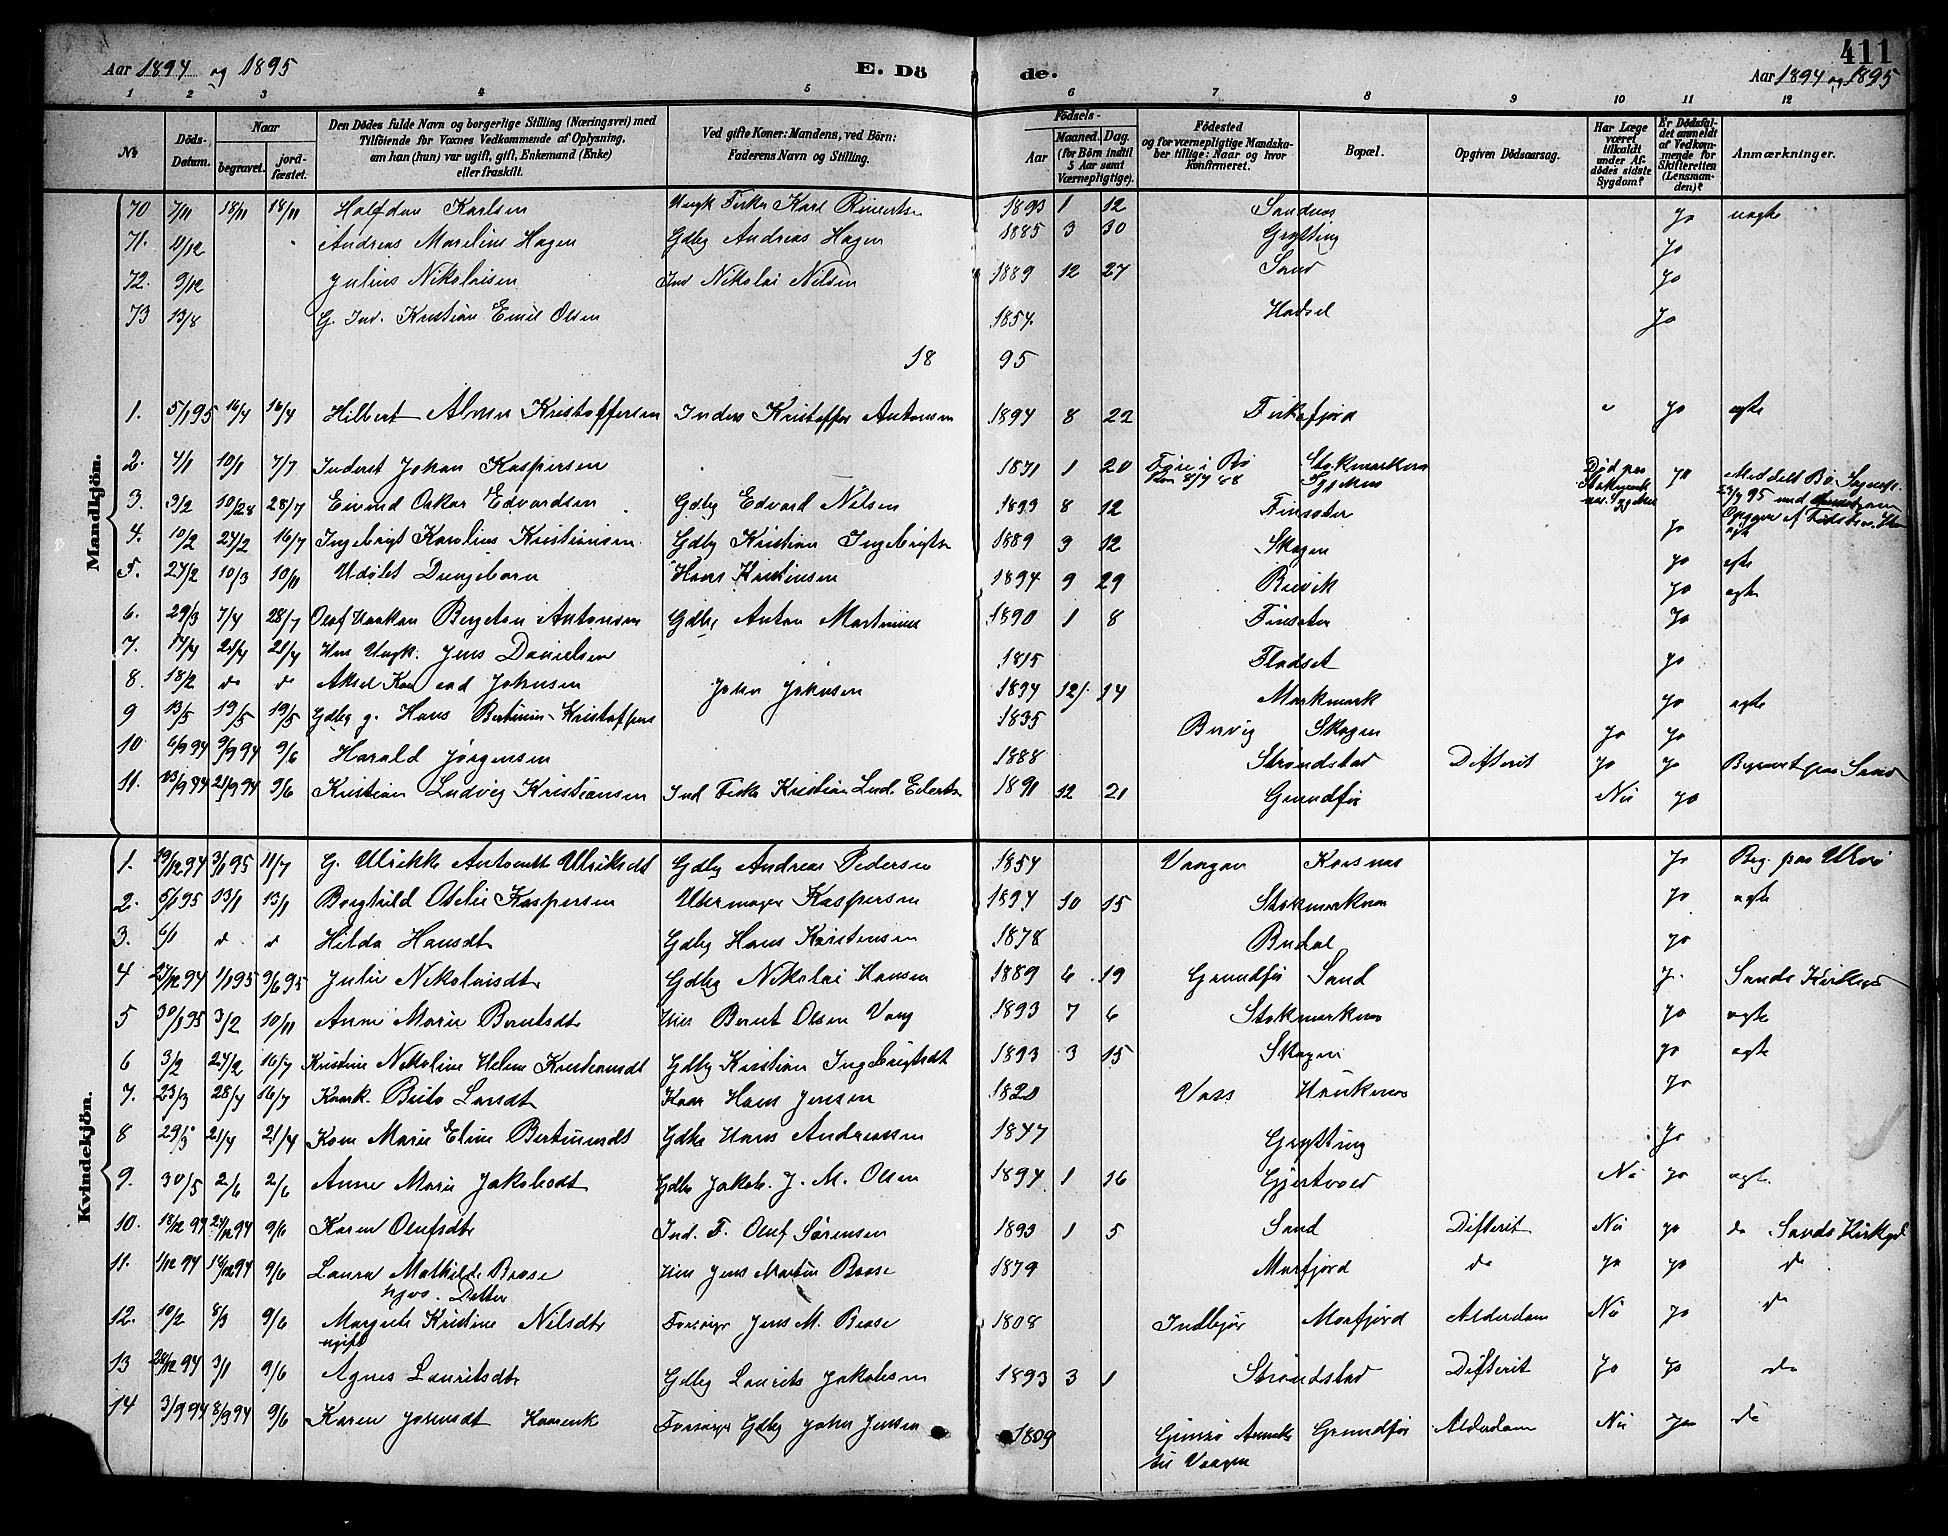 411
Aar 1894 og 1895 E. Dö de. Aar 1894 og 1895
1 2 3 4 5 6 7 8 9 10 11 12
No Döds-Datum. Naar begravet. jord-fæstet. Den Dödes fulde Navn og borgerlige Stilling (Næringsvei) med Tilföiende for Voxnes Vedkommende af Oplysning, om han (hun) var ugift, gift, Enkemand (Enke) eller fraskilt. Ved gifte Koner: Mandens, ved Börn: Faderens Navn og Stilling. Födsels- Aar Maaned. Dag. (for Börn indtil 5 Aar samt Værnepligtige). Födested og for værnepligtige Mandskaber tillige: Naar og hvor konfirmeret. Bopæl. Opgiven Dödsaarsag. Har Læge været tilkaldt under Afdödes sidste Sygdom? Er Dödsfaldet anmeldt af Vedkommende for Skifteretten (Lensmanden)? Anmærkninger.
Mandkjön.
70 7/11 18/11 18/11 Halfdan Karlsen Karl 1893 1 12 Sandnes Jo uægte
71. 11/12 Andreas Marelius Hagen Gdbg Andreas Hagen 1885 3 30 Grytting Jo
72. 9/12 Julius Nikolaisen Ind Nikolai Nilsen 1889 12 27 Sand Jo
73 13/8 G. Ind. Kristian Emil Olsen 1854. Hadsel Jo
18 95
1. 5/1 95 16/4 16/4 Hilbert Kristoffersen Inders Kristoffer Antonsen 1894 8 22 Fiskefjord Jo ægte
2. 4/1 10/1 7/7 Inderst Johan Kaspersen 1871 1 20 i Bö Stokmarknes Död paa Jo Meddelt Bö
3. 3/2 10/28 28/7 Eivind Oskar Edvardsen Gdbg Edvard Nilsen 1893 8 12 Finsæter Jo
4. 10/2 24/2 16/7 Ingebrigt Karelius Kristiansen Gdbg Kristian Ingebrigts 1889 3 12 Skagen Jo ægte
5. 27/2 10/3 10/11 Udöbt Drengebarn Hans Kristensen 1894 9 29 Jo ægte
6. 29/3 7/4 28/7 Olaf Haakon Bergeton Antonsen Gdbg Anton Martinius 1890 1 8 Finsæter Jo
7. 14/4 21/4 21/4 Hus Ungk. Jens Danielsen 1815 Fladset Jo
8. 18/2 do do Aksel Konrad Johnsen John Johnsen 1894 12 14 Jo ægte
9 13/5 19/5 19/5 Gdbg g. Hans Bertinius Kristoffers 1835 Skagen Jo Jo
10 6/9 94 9/9 94 9/6 Harald Jørgensen 1888 Strøndstad Difterit Jo Jo Begravet paa Sand
11. 13/9 94 21/9 94 9/6 Kristian Ludvig Kristiansen Ind Fisker Kristian Lud. Eilerts 1891 12 21 Grundför Nei Jo
Kvindekjön.
1. 29/12 94 3/1 95 11/7 G. Ulrikke Antonette Ulriksdt Gdbg Andreas Pedersen 1854 Vaagan Korsnes Jo Beg. paa Ulvö
2. 5/1 95 13/1 13/1 Borghild Otelie Kaspersen Uhrmager Kaspersen 1894 10 15 Stokmarknes Jo ægte
3. 6/1 do do Hilda Hansdt Gdbg Hans Karstensen 1878 Budal Jo
4 27/12 94 1/1 95 9/6 95 Julie Nikolaisdtr Gdbg Nikolai Hansen 1889 6 19 Grundför Sand J. Sands Kirkegd
5 30/1 95 3/2 10/11 Anne Marie Berntsdtr Hus Bernt Olsen Vang 1893 7 6 Stokmarknes Jo ægte
6 3/2 24/2 16/7 Kristine Nikoline Helene Kristiansdt Gdbg Kristian Ingebrigtsdt 1893 3 15 Skagen Jo ægte
7. 23/3 28/4 16/7 Kaark. Brita Larsdt Kaar Hans Jensen 1820 Voss Haukenes Jo
8 29/3 21/4 21/4 Kone Marie Eline Bertinusdt Gdbr Hans Andreassen 1847 Grytting Jo
9. 30/5 2/6 2/6 Anne Marie Jakobsdt Gdbr Jakob. J. M. Olsen 1894 1 16 Nei Jo ægte.
10. 18/12 94 27/12 94 9/6 Karen Olufsdtr Ind. F. Oluf Sørensen 1893 1 5 Sand Difterit Nei Jo do Sands Kirkegd
11. 1/12 94 16/12 94 9/6 Laura Mathilde Baase Hus Jens Martin Baase 1879 Morfjord do Jo Jo do
hjvs. Datter
12. 10/2 8/3 9/6 Margrete Kristine Nilsdtr Forsörger Jens M. Baase 1808 Indbjör Morfjord Alderdom Nei Jo do
ugift
13 28/12 94 3/1 9/6 Agnes Lauritsdtr Gdbg Laurits Jakobsen 1893 3 1 Strøndstad Difterit Jo Jo do
14 3/9 94 8/9 94 9/6 Karen Johnsdt Kaarenk Forsörger Gdbg John Jensen 1809 Gimsö Annekx til Vaagan Grundför Alderdom Nei Jo do